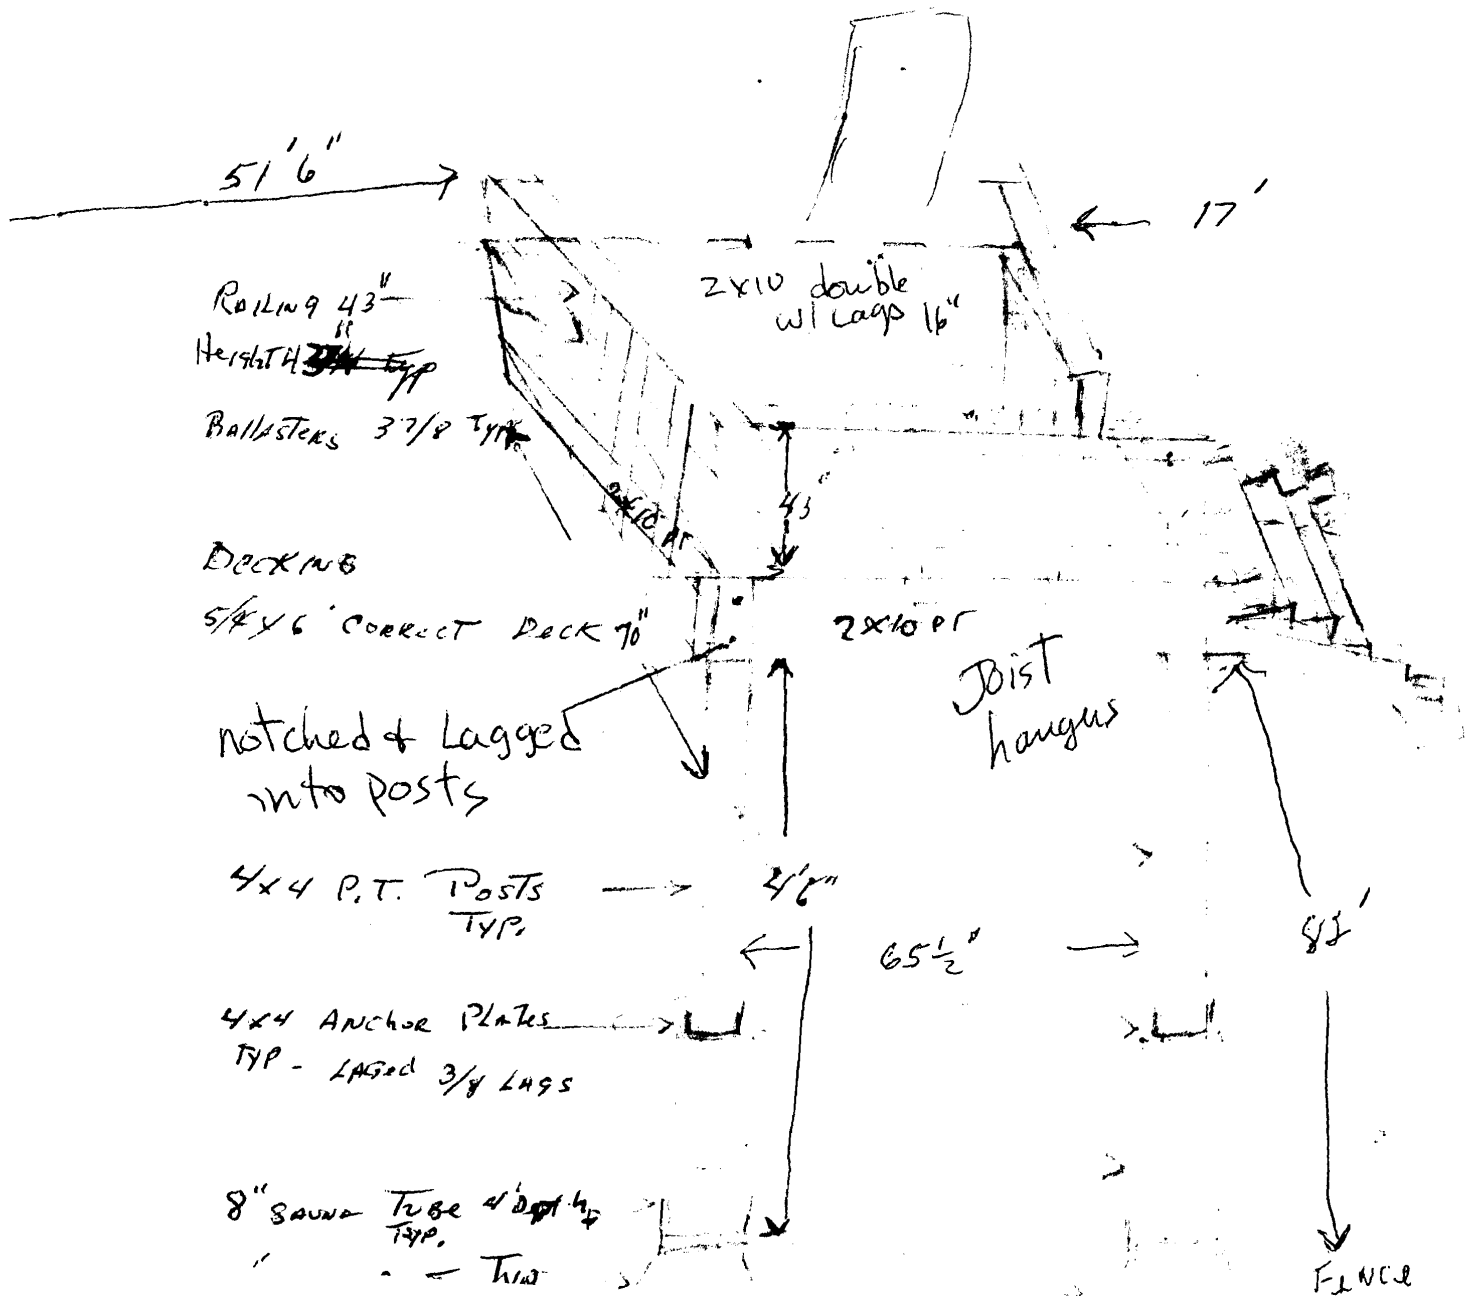 51'6"
17'
RAILING 43"
Height 4
Typ
2x10 double
w/ Lags 16"
BALLASTERS 3 7/8 Typ.
43"
2x10 PT
DECKING
5/4 x 6 CORRECT DECK 70"
2x10 PT
JOIST
hangus
notched & Lagged
into posts
4x4 P.T. POSTS
TYP.
4'6"
65 1/2"
4x4 ANCHOR PLATES
TYP - LAGed 3/8 LAGS
8" SAUNA TUBE 4'
TYP.
FENCE